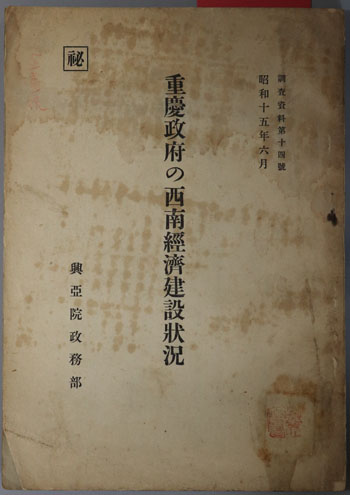 調査資料第十四號
昭和十五年六月
重慶政府の西南經濟建設狀況
興亞院政務部
祕